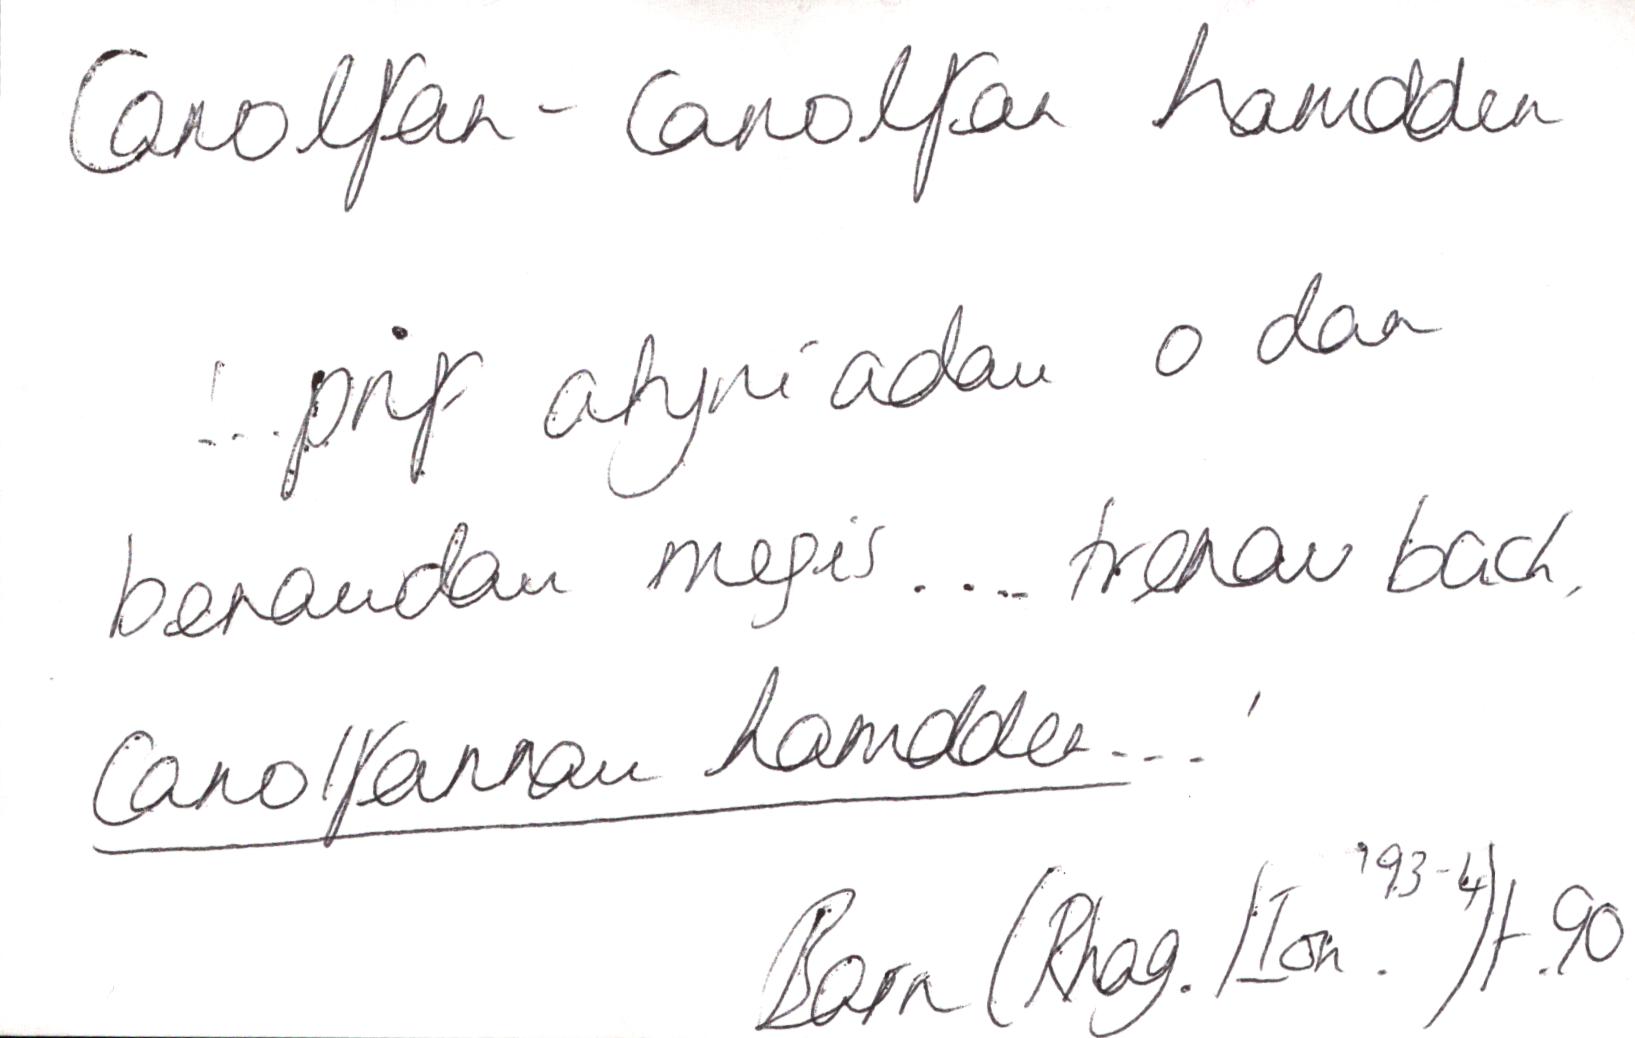 Canolfan - Canolfan hamdden
'... prif atyniadau o dan
beraudau megis .... trenau bach,
canolfannau hamdden ... '
Barn (Rhag. / Ion. '93-4) t. 90